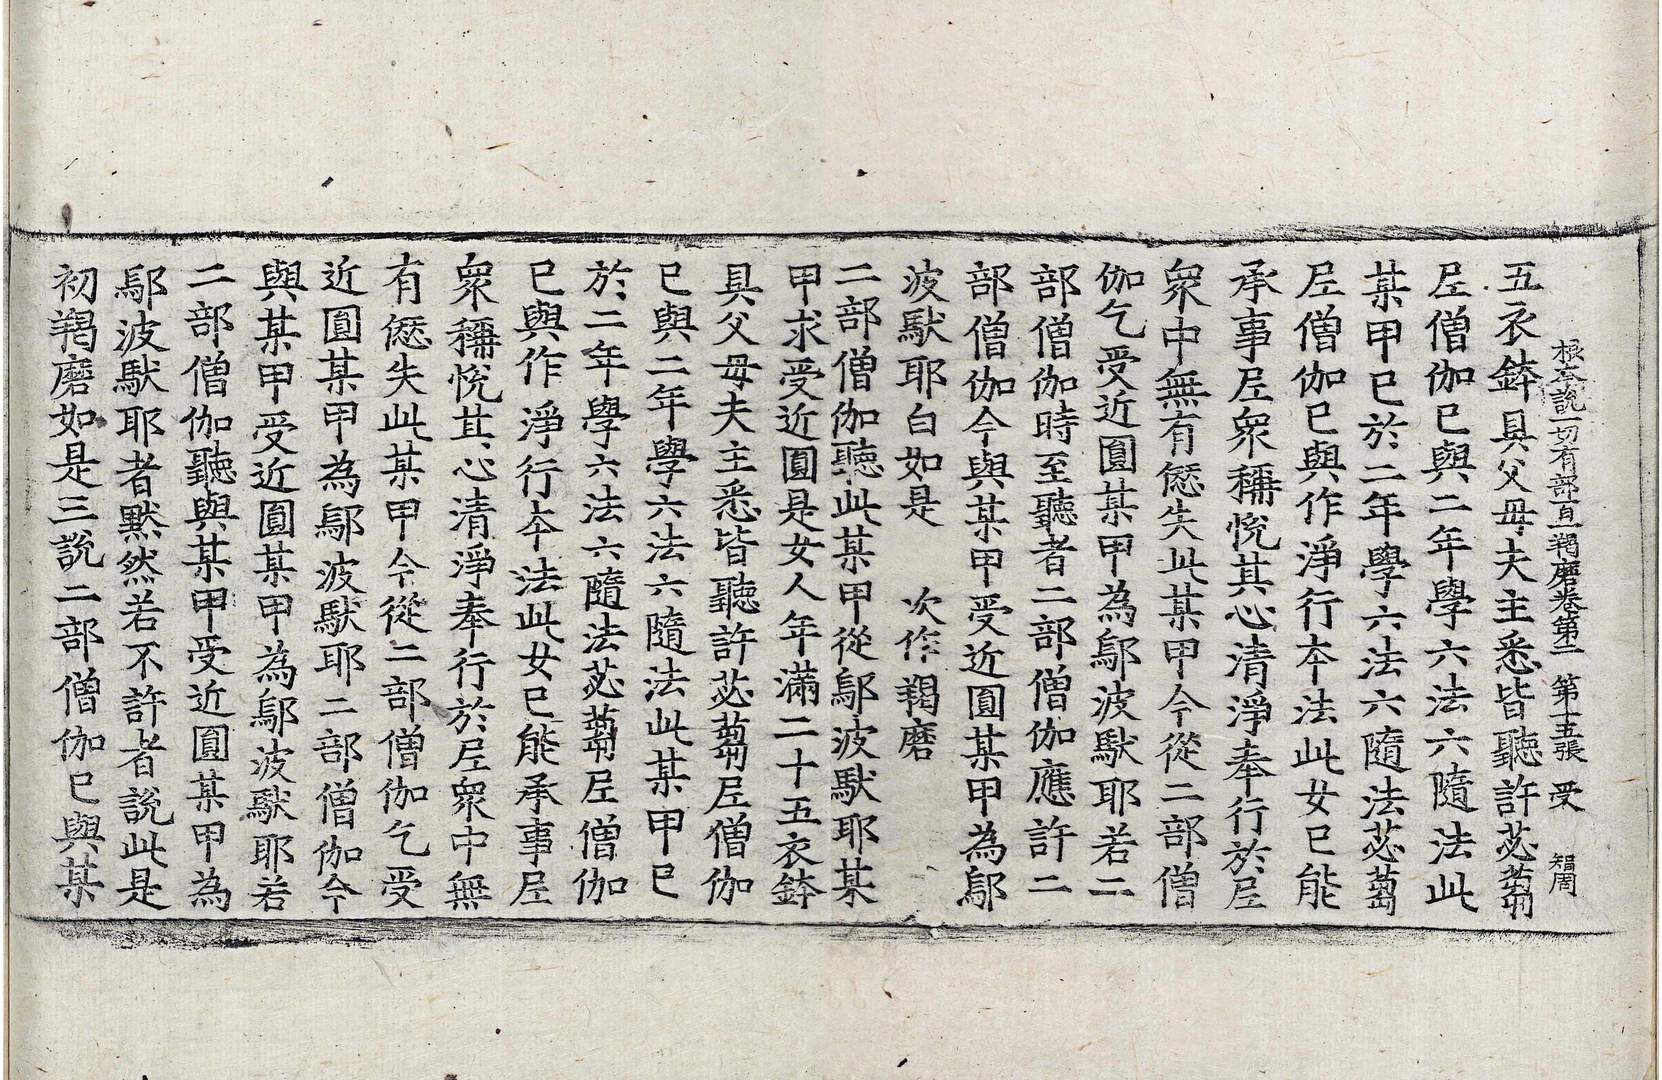 根本說一切有部百一羯磨卷第二 第十五張 受 福周
五衣鉢具父母夫主悉皆聽許苾蒭
尼僧伽已與二年學六法六隨法此
某甲已於二年學六法六隨法苾蒭
尼僧伽已與作淨行本法此女已能
承事尼衆稱悅其心清淨奉行於尼
衆中無有愆失此某甲今從二部僧
伽乞受近圓某甲為鄔波馱耶若二
部僧伽時至聽者二部僧伽應許二
部僧伽今與某甲受近圓某甲為鄔
波馱耶白如是 次作羯磨
二部僧伽聽此某甲從鄔波馱耶某
甲求受近圓是女人年滿二十五衣鉢
具父母夫主悉皆聽許苾蒭尼僧伽
已與二年學六法六隨法此某甲已
於二年學六法六隨法苾蒭尼僧伽
已與作淨行本法此女已能承事尼
衆稱悅其心清淨奉行於尼衆中無
有愆失此某甲今從二部僧伽乞受
近圓某甲為鄔波馱耶二部僧伽今
與某甲受近圓某甲為鄔波馱耶若
二部僧伽聽與某甲受近圓某甲為
鄔波馱耶者默然若不許者說此是
初羯磨如是三說二部僧伽已與某